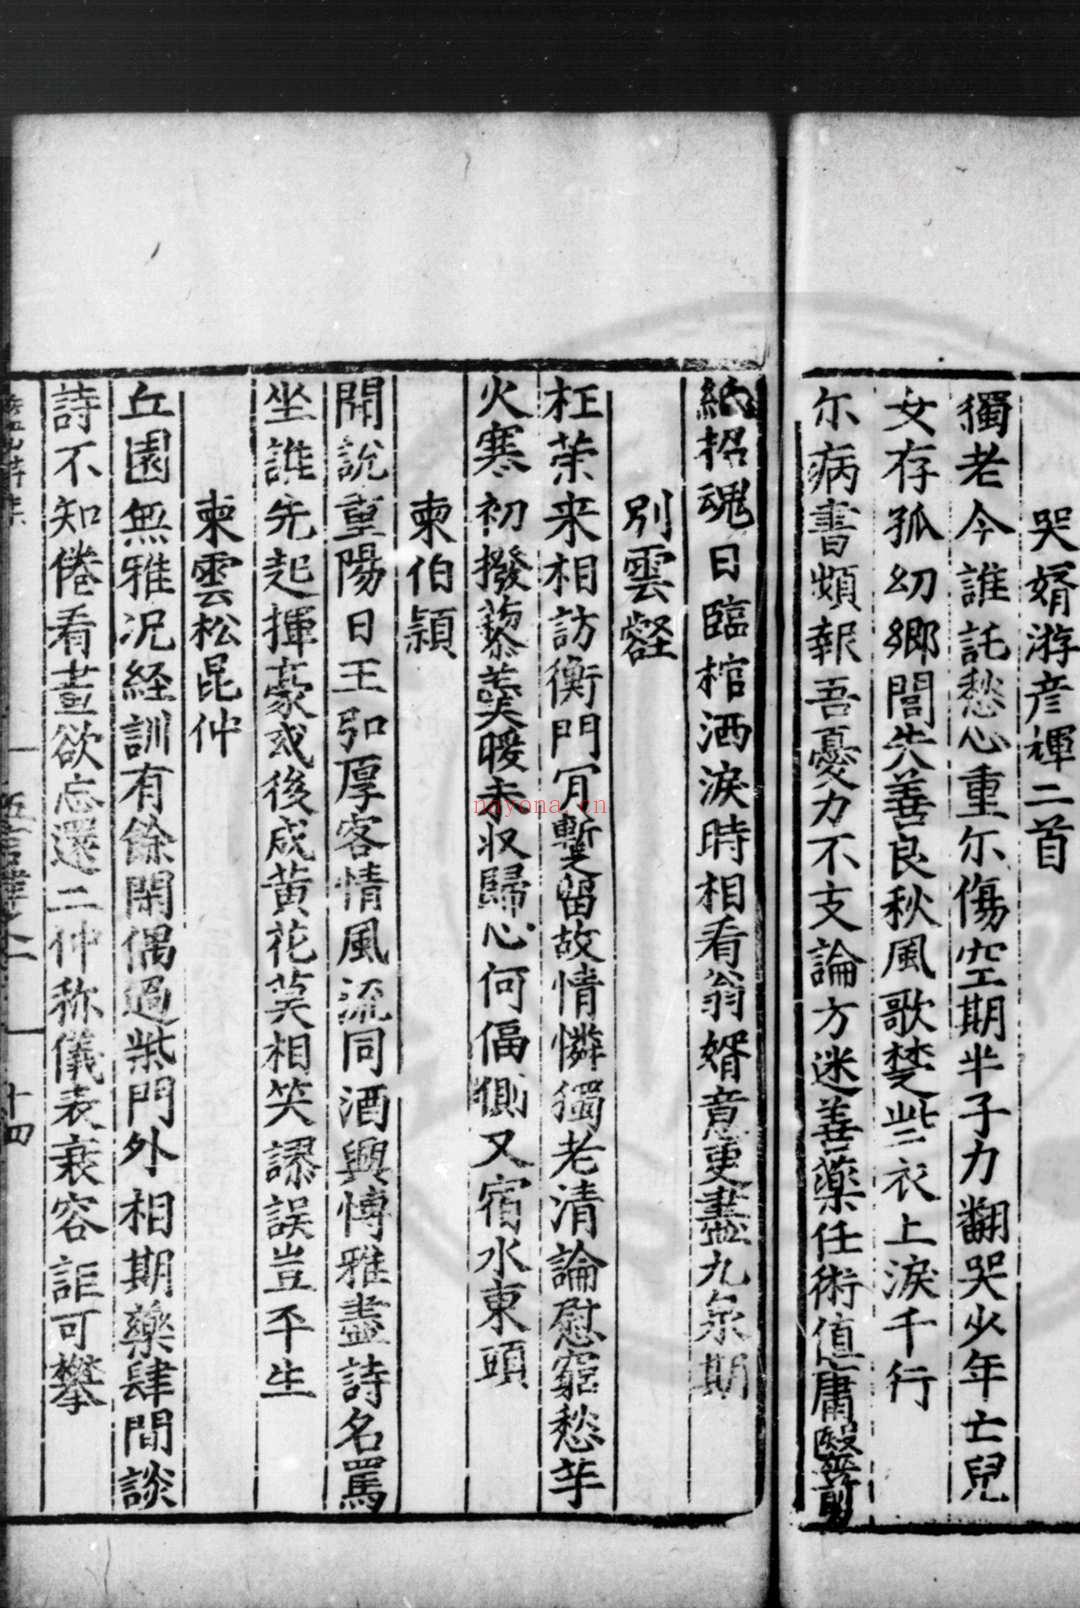 哭婿游彦禪二首
獨老今誰託愁心重尓傷空期半子力翻哭少年亡兒
女存孤幼鄉閭失善良秋風歌楚些衣上淚千行
尓病書頻報吾憂力不支論方迷善藥任術值庸醫剪
紙招魂日臨棺洒淚時相看翁婿意更盡九泉期
別雲壑
枉荣来相訪衡門肎暫留故情憐獨老清論慰窮愁芋
火寒初撥藜羮暖未収歸心何偪側又宿水東頭
柬伯頴
開說重陽日王弘厚客情風流同酒興博雅盡詩名罵
坐誰先起揮豪或後成黄花莫相笑謬誤豈平生
柬雲松昆仲
丘園無雅况経訓有餘閑偶過柴門外相期藥肆間談
詩不知倦看畫欲忘還二仲称儀表衰容詎可攀
五言律卷二
十四
nayona.cn